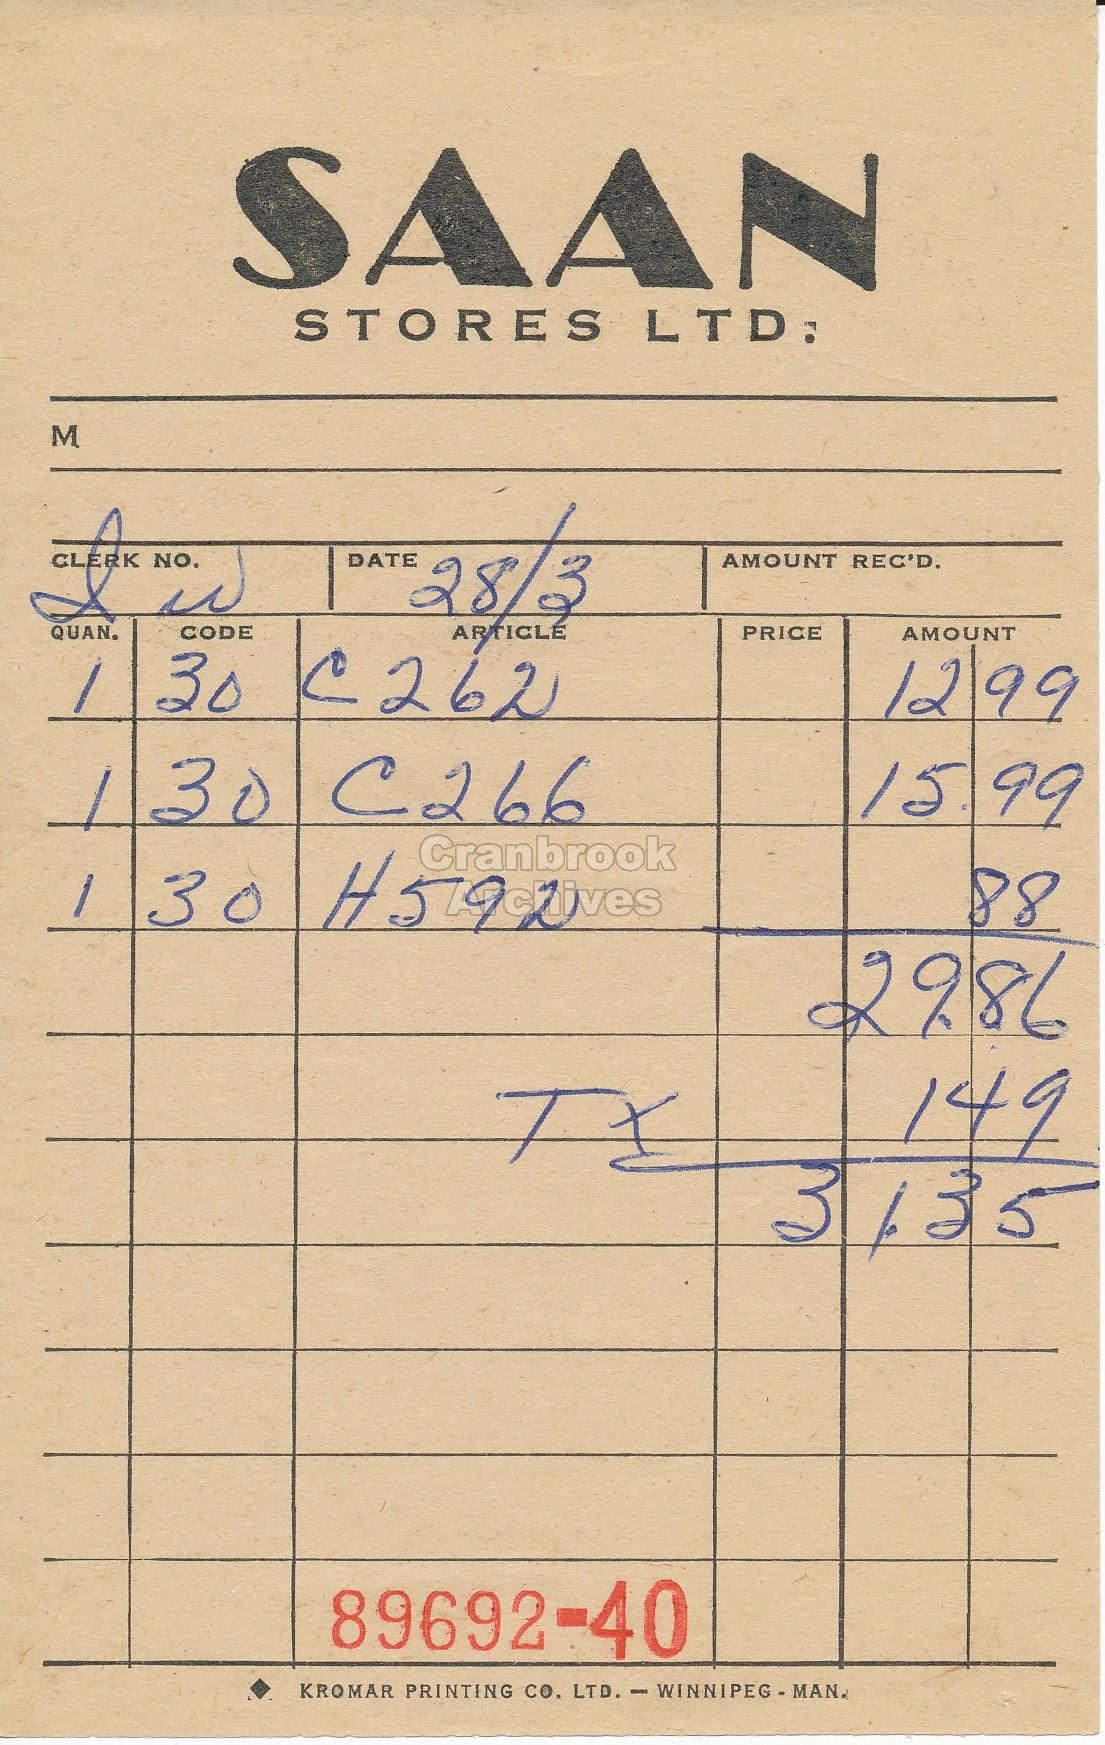 SAAN
STORES LTD.
M
CLERK NO. DATE 28/3 AMOUNT REC'D.
QUAN. CODE ARTICLE PRICE AMOUNT
1 30 C262 12 99
1 30 C266 15.99
Cranbrook
Archives
1 30 H592 88
29.86
TX 149
31.35
89692-40
KROMAR PRINTING CO. LTD. — WINNIPEG - MAN.